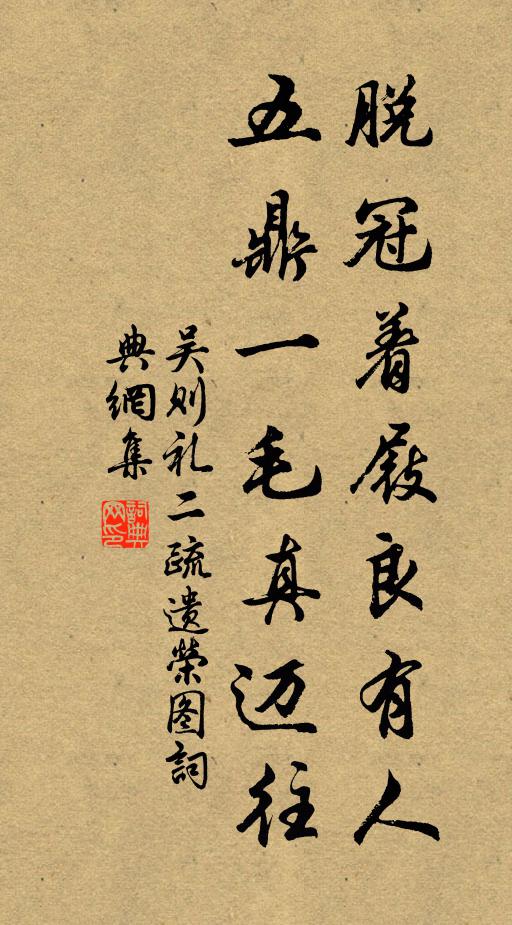 脱冠着屐良有人
五鼎一毛真迈往
吴则礼二疏遗荣图詞
典網集
詞典
网印